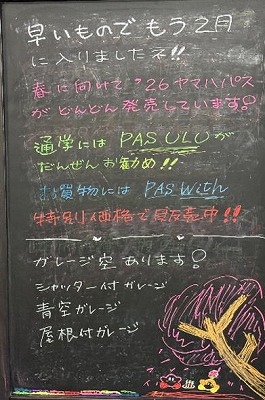 早いもので もう2月
に入りましたネ!!
春に向けて '26 ヤマハパス
が どんどん 発売しています!
通学には PAS ULU が
だんぜん お勧め!!
お買物には PAS With
特別価格で 販売中!!
ガレージ空 あります!
シャッター付 ガレージ
青空ガレージ
屋根付ガレージ